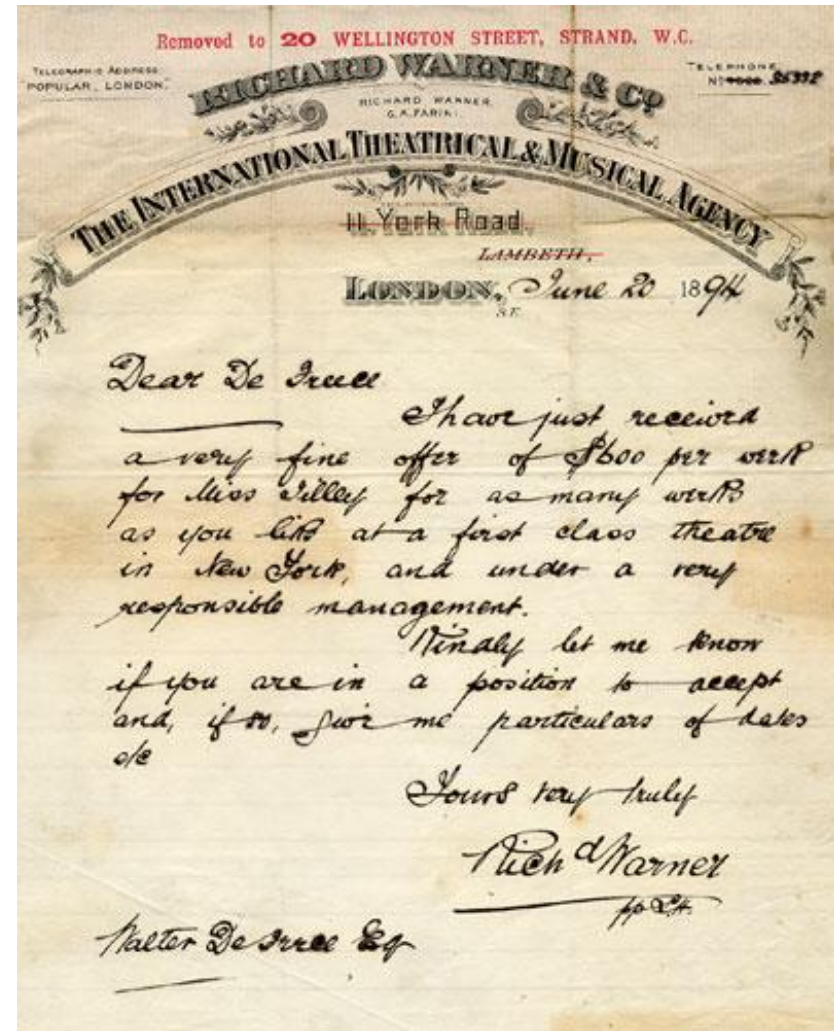 Removed to 20 WELLINGTON STREET, STRAND, W.C.
TELEGRAPHIC ADDRESS
"POPULAR, LONDON."
TELEPHONE
No
RICHARD WARNER & Co
RICHARD WARNER.
G.A. FARINI.
THE INTERNATIONAL THEATRICAL & MUSICAL AGENCY
11, York Road,
LAMBETH,
LONDON, June 20 1894
S.E.
Dear De Frece
I have just received
a very fine offer of $600 per week
for Miss Tilley for as many weeks
as you like at a first class theatre
in New York, and under a very
responsible management.
Kindly let me know
if you are in a position to accept
and, if so, give me particulars of dates
&c
Yours very truly
Richd Warner
pp
Walter De Frece Esq